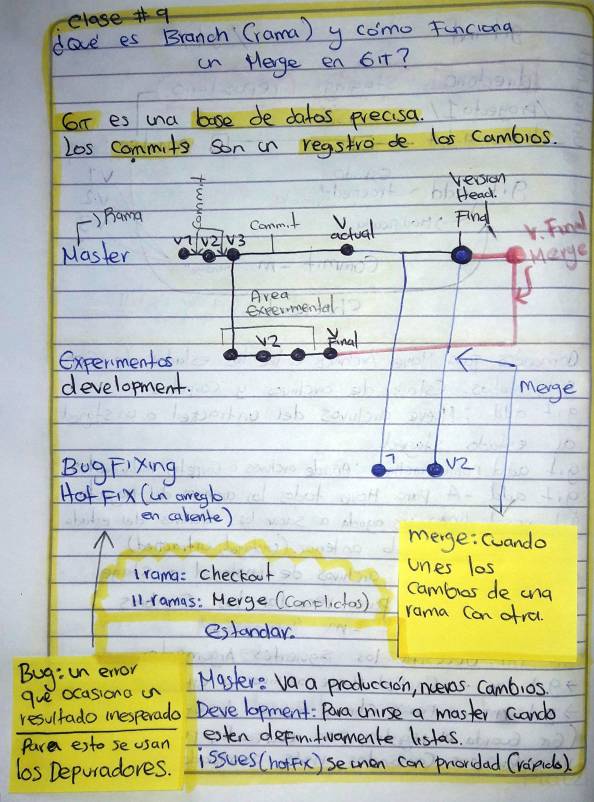 clase #9
¿Qué es Branch (rama) y cómo Funciona
un Merge en GIT?
GIT es una base de datos precisa.
Los commits son un registro de los cambios.
Rama
Master
V1 V2 V3
Commit
V
actual
Version
Head.
Final
V. Final
Merge
Area
Experimental
V2
V
Final
Experimentos
development.
Merge
Bug Fixing
Hot Fix (un arreglo
en caliente)
1
V2
merge: Cuando
unes los
cambios de una
rama con otra.
1 rama: checkout
11-ramas: Merge (Conflictos)
estandar.
Bug: un error
que ocasiona un
resultado inesperado
Para esto se usan
los Depuradores.
Master: Va a producción, nuevos cambios.
Development: Para unirse a master cuando
esten definitivamente listas.
issues (hotfix) se unen con prioridad (rápido).